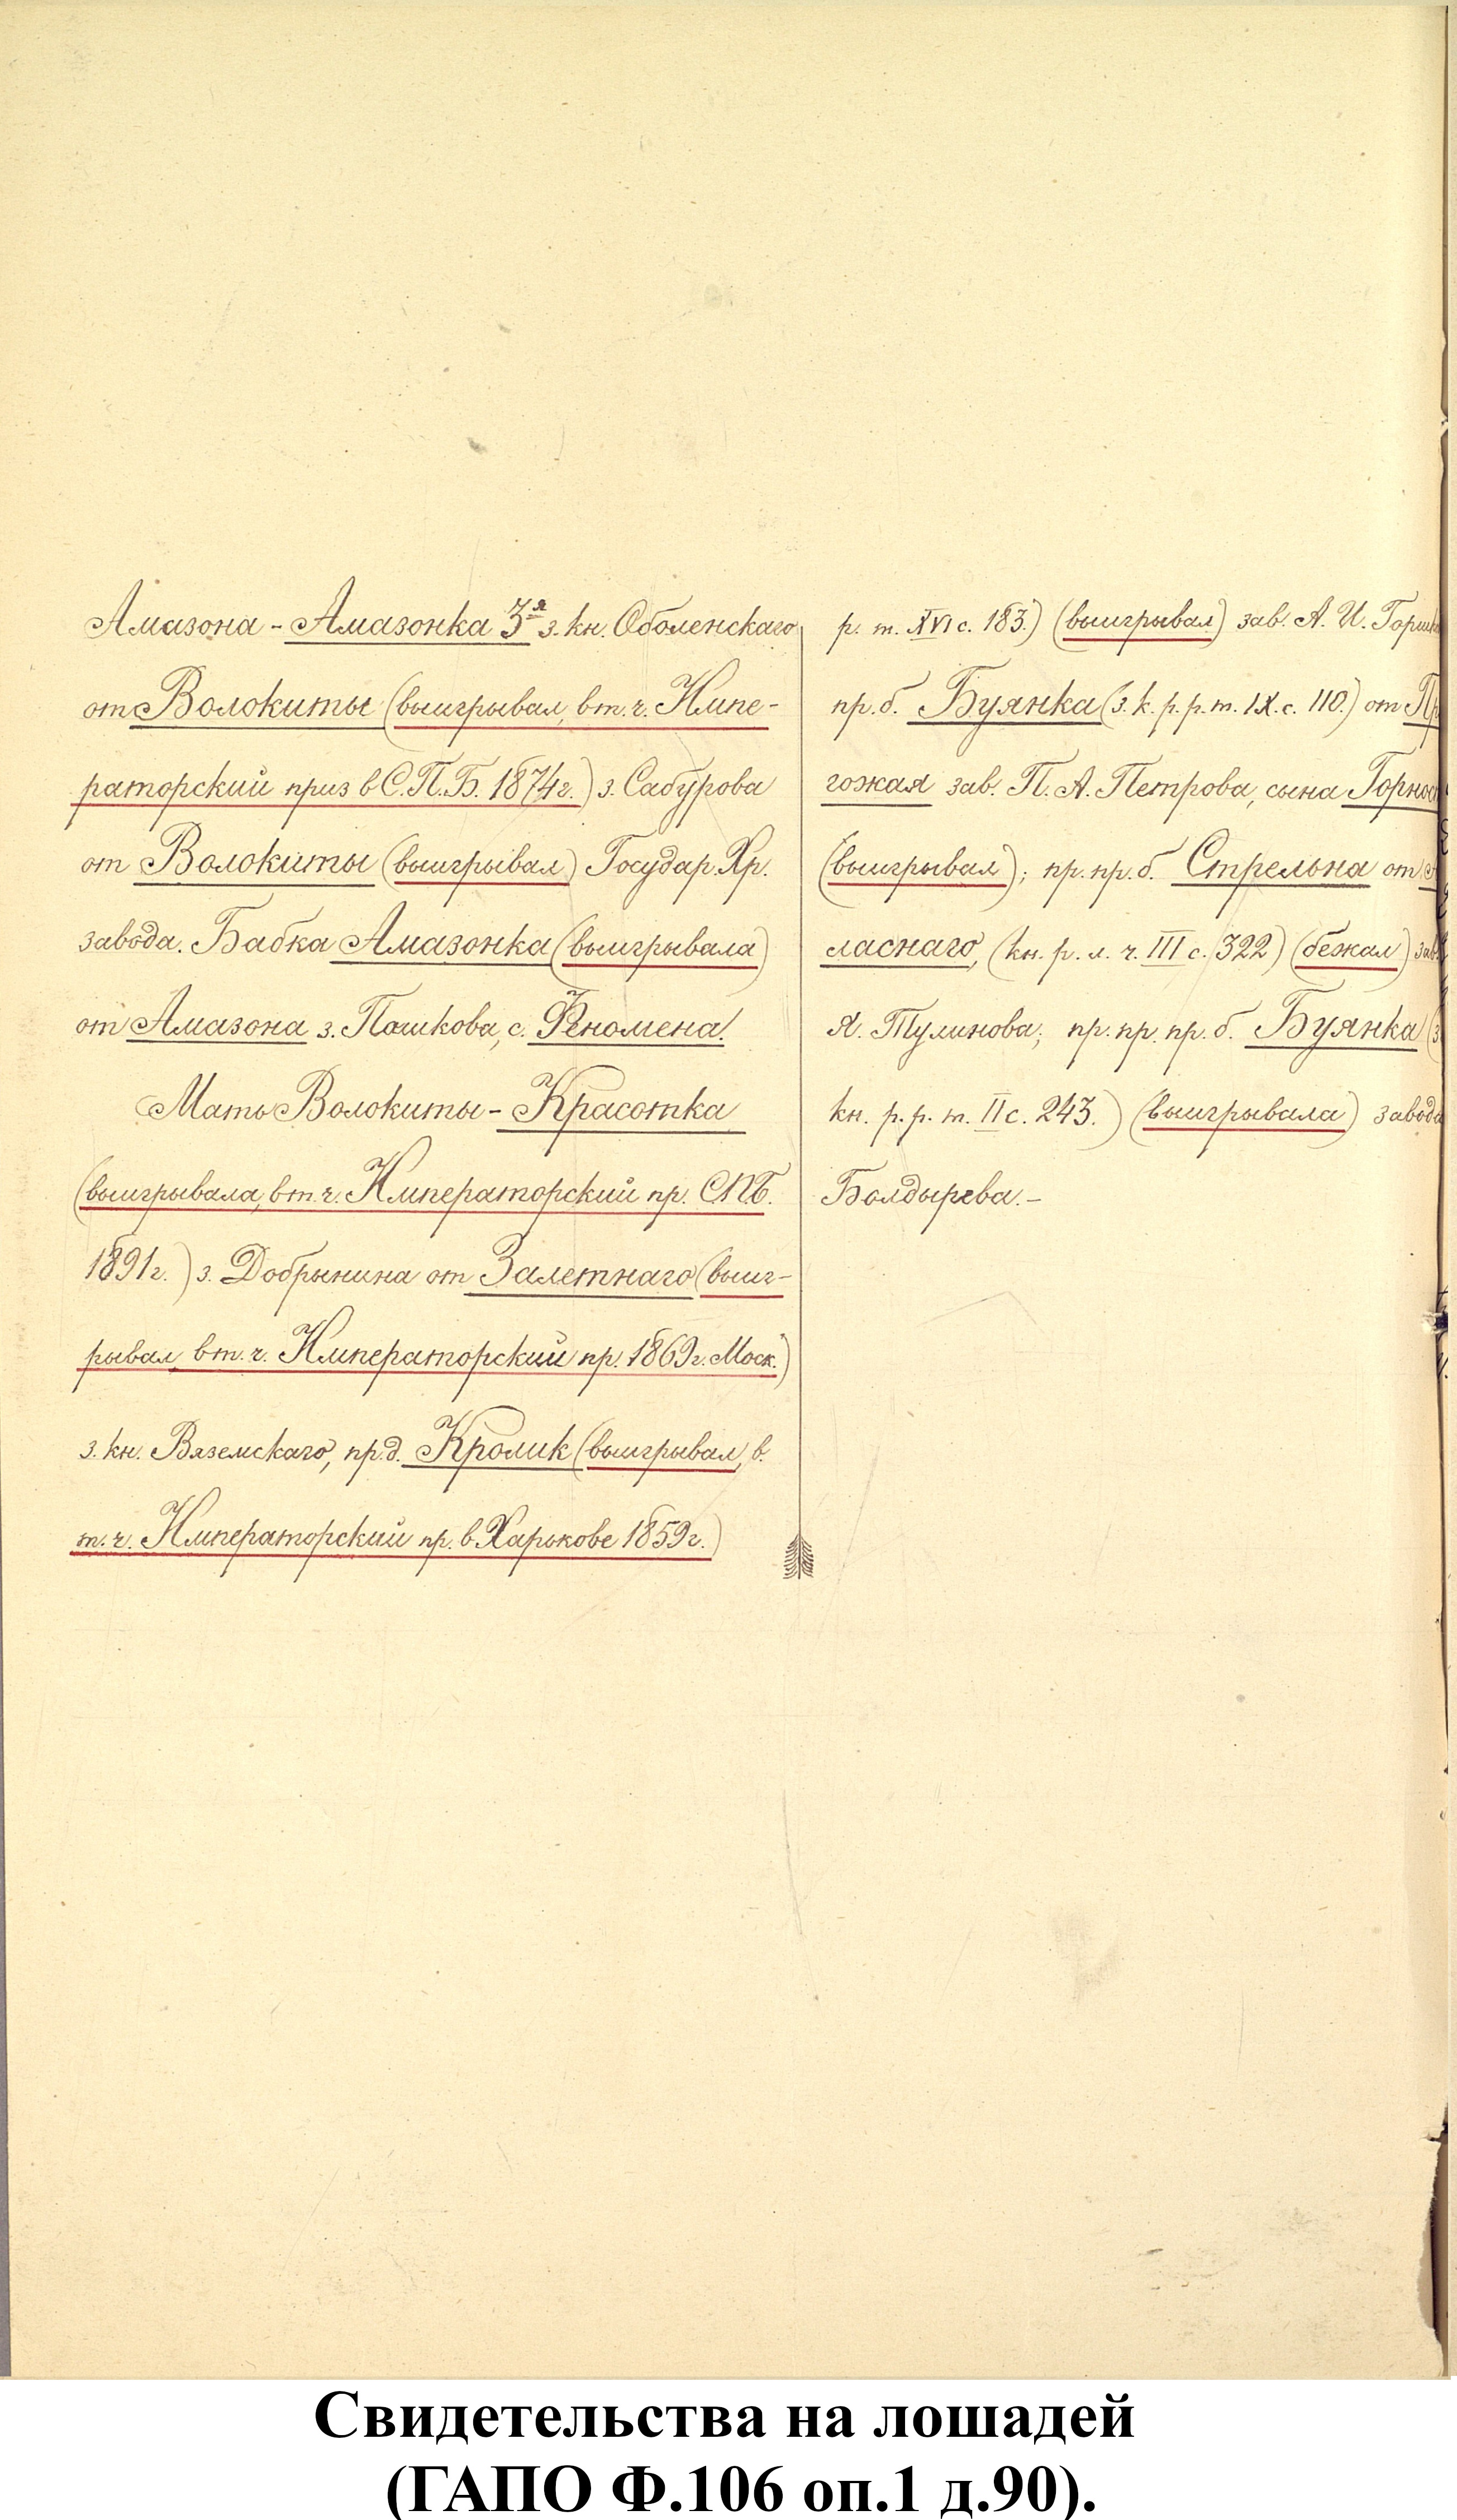 Амазона - Амазонка 3я з. кн. Оболенскаго
от Волокиты (выигрывал, в т. ч. Импе-
раторский приз в С.П.Б. 1874 г.) з. Сабурова
от Волокиты (выигрывал) Государ. Хр.
завода. Бабка Амазонка (выигрывала)
от Амазона з. Пашкова, с. Феномена.
Мать Волокиты - Красотка
(выигрывала, в т. ч. Императорский пр. СПБ.
1891 г.) з. Добрынина от Залетнаго (выиг-
рывал, в т. ч. Императорский пр. 1869 г. Моск.)
з. кн. Вяземскаго, пр. д. Кролик (выигрывал, в.
т. ч. Императорский пр. в Харькове 1859 г.)
р. т. XVI с. 183.) (выигрывал) зав. А. И. Горшк
пр. б. Буянка (з. к. р. р. т. IX. с. 110.) от Пр
гожая зав. П. А. Петрова, сына Горнос
(выигрывал); пр. пр. б. Стрельна от
ласнаго, (кн. р. л. ч. III с. 322) (бежал) зав
Я. Тулинова; пр. пр. пр. б. Буянка (з
кн. р. р. т. II с. 243.) (выигрывала) завода
Болдырева. -
Свидетельства на лошадей
(ГАПО Ф.106 оп.1 д.90).